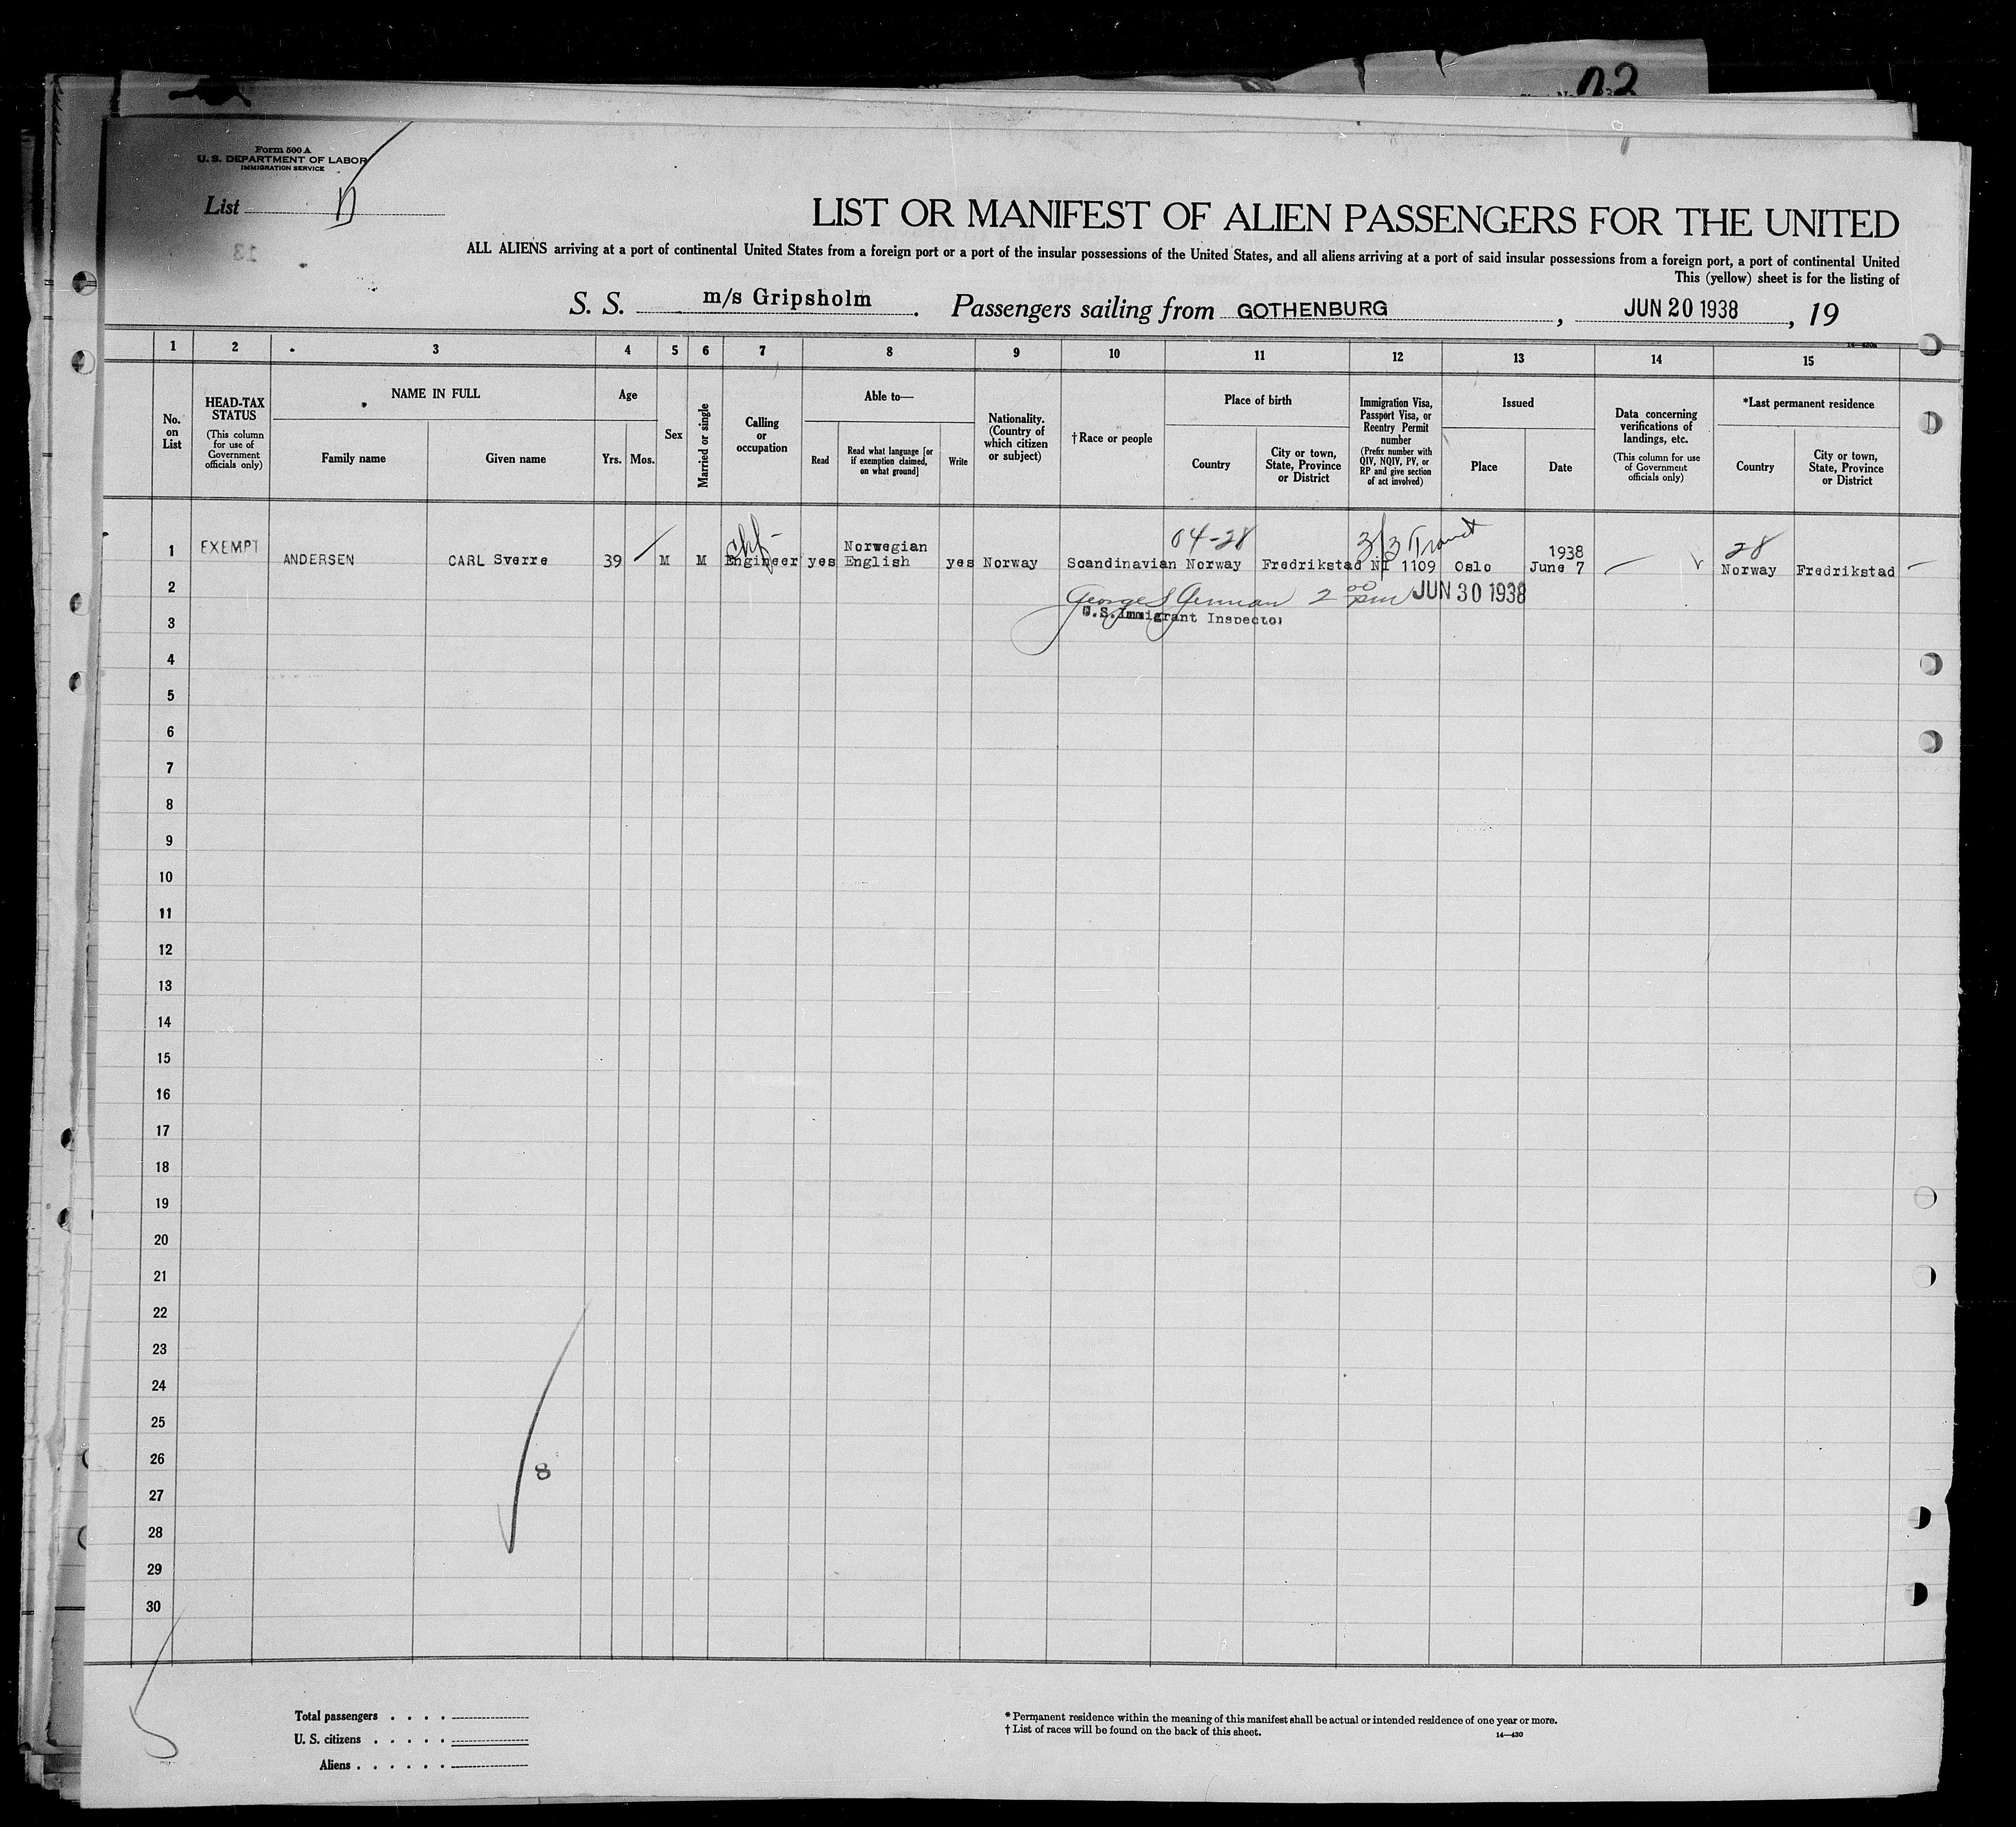 Form 500 A
U. S. DEPARTMENT OF LABOR
IMMIGRATION SERVICE
List
13
LIST OR MANIFEST OF ALIEN PASSENGERS FOR THE UNITED
ALL ALIENS arriving at a port of continental United States from a foreign port or a port of the insular possessions of the United States, and all aliens arriving at a port of said insular possessions from a foreign port, a port of continental United
This (yellow) sheet is for the listing of
S. S. m/s Gripsholm. Passengers sailing from GOTHENBURG, JUN 20 1938, 19
14—430a
1 2 3 4 5 6 7 8 9 10 11 12 13 14 15
No. on List
HEAD-TAX STATUS (This column for use of Government officials only)
NAME IN FULL
Family name
Given name
Age
Yrs. Mos.
Sex
Married or single
Calling or occupation
Able to—
Read
Read what language [or if exemption claimed, on what ground]
Write
Nationality. (Country of which citizen or subject)
†Race or people
Place of birth
Country
City or town, State, Province or District
Immigration Visa, Passport Visa, or Reentry Permit number (Prefix number with QIV, NQIV, PV, or RP and give section of act involved)
Issued
Place
Date
Data concerning verifications of landings, etc. (This column for use of Government officials only)
*Last permanent residence
Country
City or town, State, Province or District
04-28 3/3 Transit 28
Norwegian 1938
1 EXEMPT ANDERSEN CARL Sverre 39 M M Engineer yes English yes Norway Scandinavian Norway Fredrikstad NI 1109 Oslo June 7 Norway Fredrikstad
2 2 00 pm JUN 30 1938
U.S. Immigrant Inspector
3
4
5
6
7
8
9
10
11
12
13
14
15
16
17
18
19
20
21
22
23
24
25
26
8
27
28
29
30
Total passengers . . . .
U. S. citizens . . . . .
Aliens . . . . . .
* Permanent residence within the meaning of this manifest shall be actual or intended residence of one year or more.
† List of races will be found on the back of this sheet.
14—430